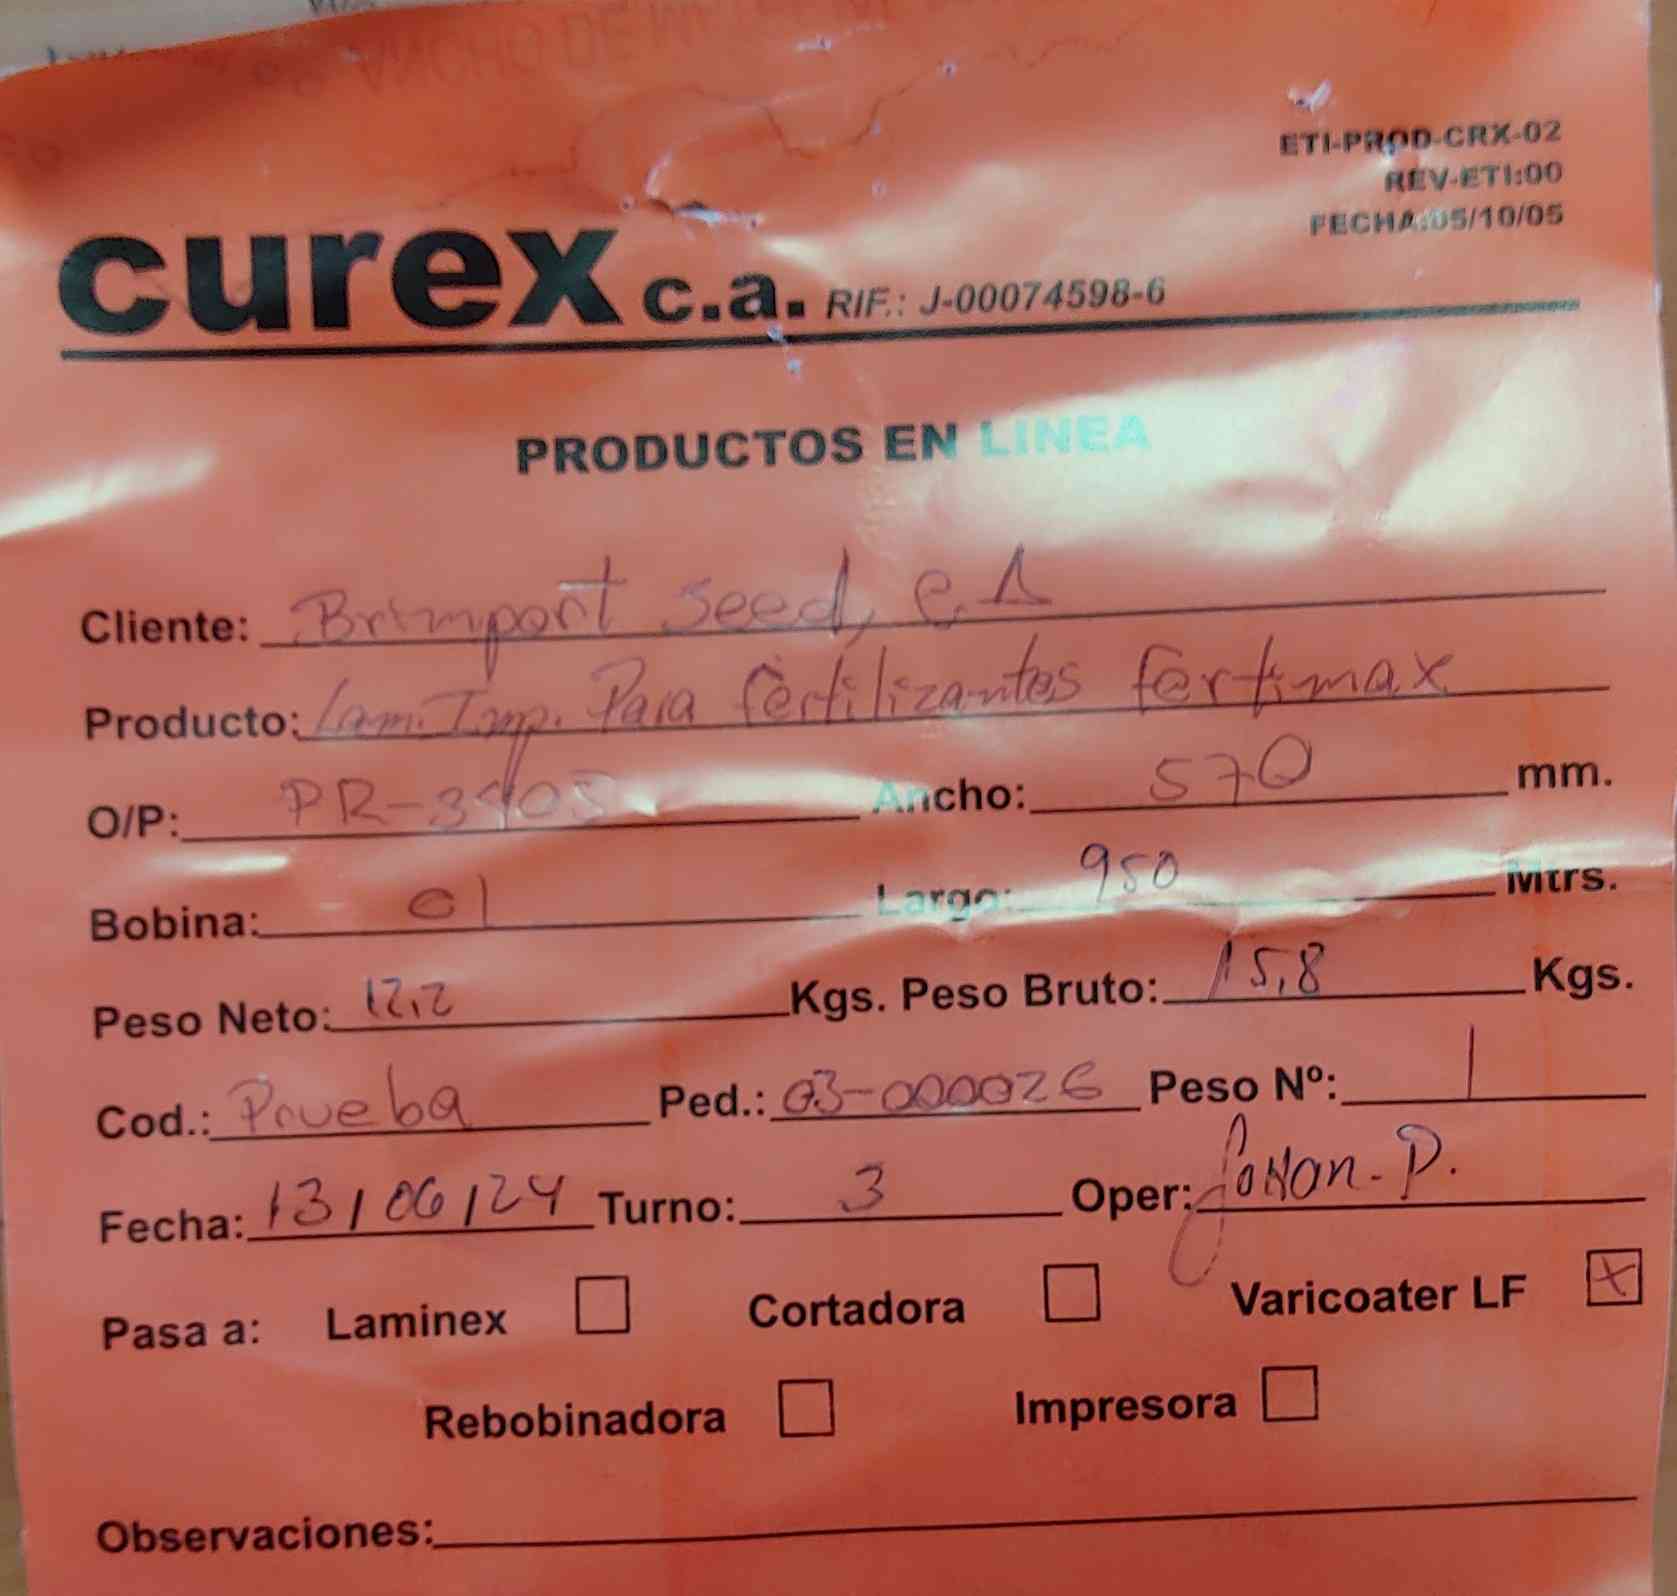 ETI-PROD-CRX-02
REV-ETI:00
FECHA:05/10/05
curex c.a. RIF.: J-00074598-6
PRODUCTOS EN LINEA
Cliente: Brimport Seed, C.A
Producto: Lam. Imp. Para fertilizantes fertimax
O/P: Ancho: 570 mm.
Bobina: 01 Largo: 950 Mtrs.
Peso Neto: 12,2 Kgs. Peso Bruto: 15,8 Kgs.
Cod.: Prueba Ped.: 03-000026 Peso Nº: 1
Fecha: 13/06/24 Turno: 3 Oper: P.
Pasa a: Laminex Cortadora Varicoater LF X
Rebobinadora Impresora
Observaciones: